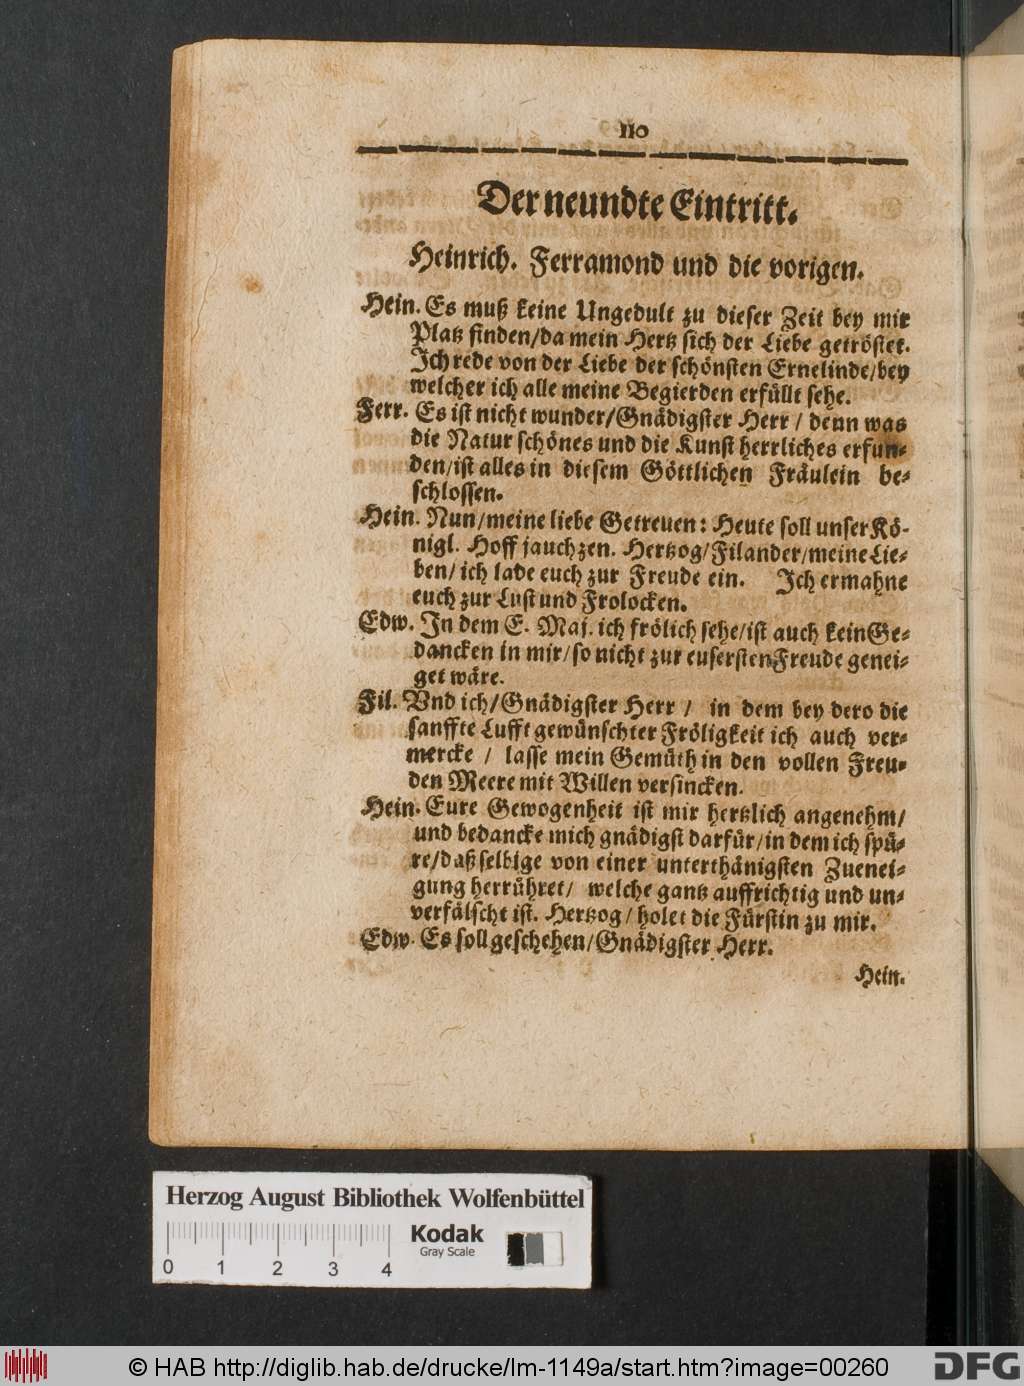 110
Der neundte Eintritt.
Heinrich. Ferramond und die vorigen.
Hein. Es muß keine Ungedult zu dieser Zeit bey mir
Platz finden/da mein Hertz sich der Liebe getröstet.
Ich rede von der Liebe der schönsten Ernelinde/bey
welcher ich alle meine Begierden erfüllt sehe.
Ferr. Es ist nicht wunder/Gnädigster Herr / denn was
die Natur schönes und die Kunst herrliches erfun-
den/ist alles in diesem Göttlichen Fräulein be-
schlossen.
Hein. Nun/meine liebe Getreuen: Heute soll unser Kö-
nigl. Hoff jauchzen. Hertzog/Filander/meine Lie-
ben/ ich lade euch zur Freude ein. Ich ermahne
euch zur Lust und Frolocken.
Edw. In dem E. Maj. ich frölich sehe/ist auch kein Ge-
dancken in mir/so nicht zur eusersten Freude genei-
get wäre.
Fil. Vnd ich/Gnädigster Herr / in dem bey dero die
sanffte Lufft gewünschter Fröligkeit ich auch ver-
mercke / lasse mein Gemüth in den vollen Freu-
den Meere mit Willen versincken.
Hein. Eure Gewogenheit ist mir hertzlich angenehm/
und bedancke mich gnädigst darfür/in dem ich spü-
re/daß selbige von einer unterthänigsten Zuenei-
gung herrühret/ welche gantz auffrichtig und un-
verfälscht ist. Hertzog/ holet die Fürstin zu mir.
Edw. Es soll geschehen/Gnädigster Herr.
Hein.
Herzog August Bibliothek Wolfenbüttel
Kodak
Gray Scale
0 1 2 3 4
© HAB http://diglib.hab.de/drucke/lm-1149a/start.htm?image=00260
DFG